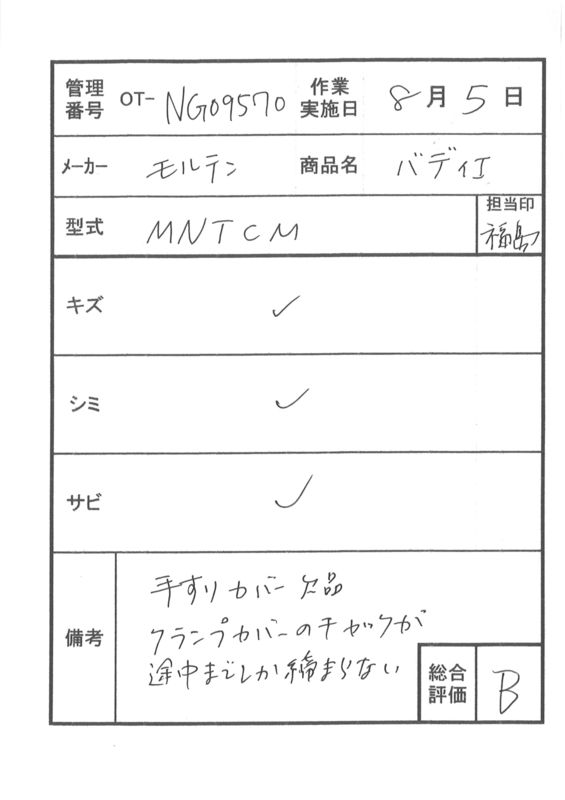 管理番号 OT- NG09570 作業実施日 8月5日
メーカー モルテン 商品名 バディI
型式 MNTCM 担当印 福島
キズ ✓
シミ ✓
サビ ✓
備考 手すりカバー欠品
クランプカバーのチャックが
途中までしか締まらない
総合評価 B